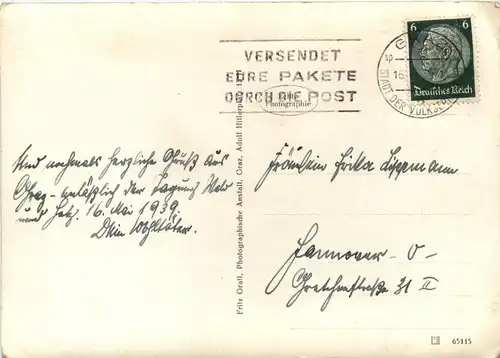 VERSENDET
EURE PAKETE
DURCH DIE POST
Echte
Photographie
6 6
Deutsches Reich
STADT DER VOLKS
Und nochmals herzliche Grüße aus
Graz - anläßlich der Tagung
und 16. Mai 1939.
Dein
Fritz Gratl, Photographische Anstalt, Graz, Adolf Hitlerplatz
Fräulein Erika Lippmann
Hannover - O -
Gretchenstraße 31 II
65115